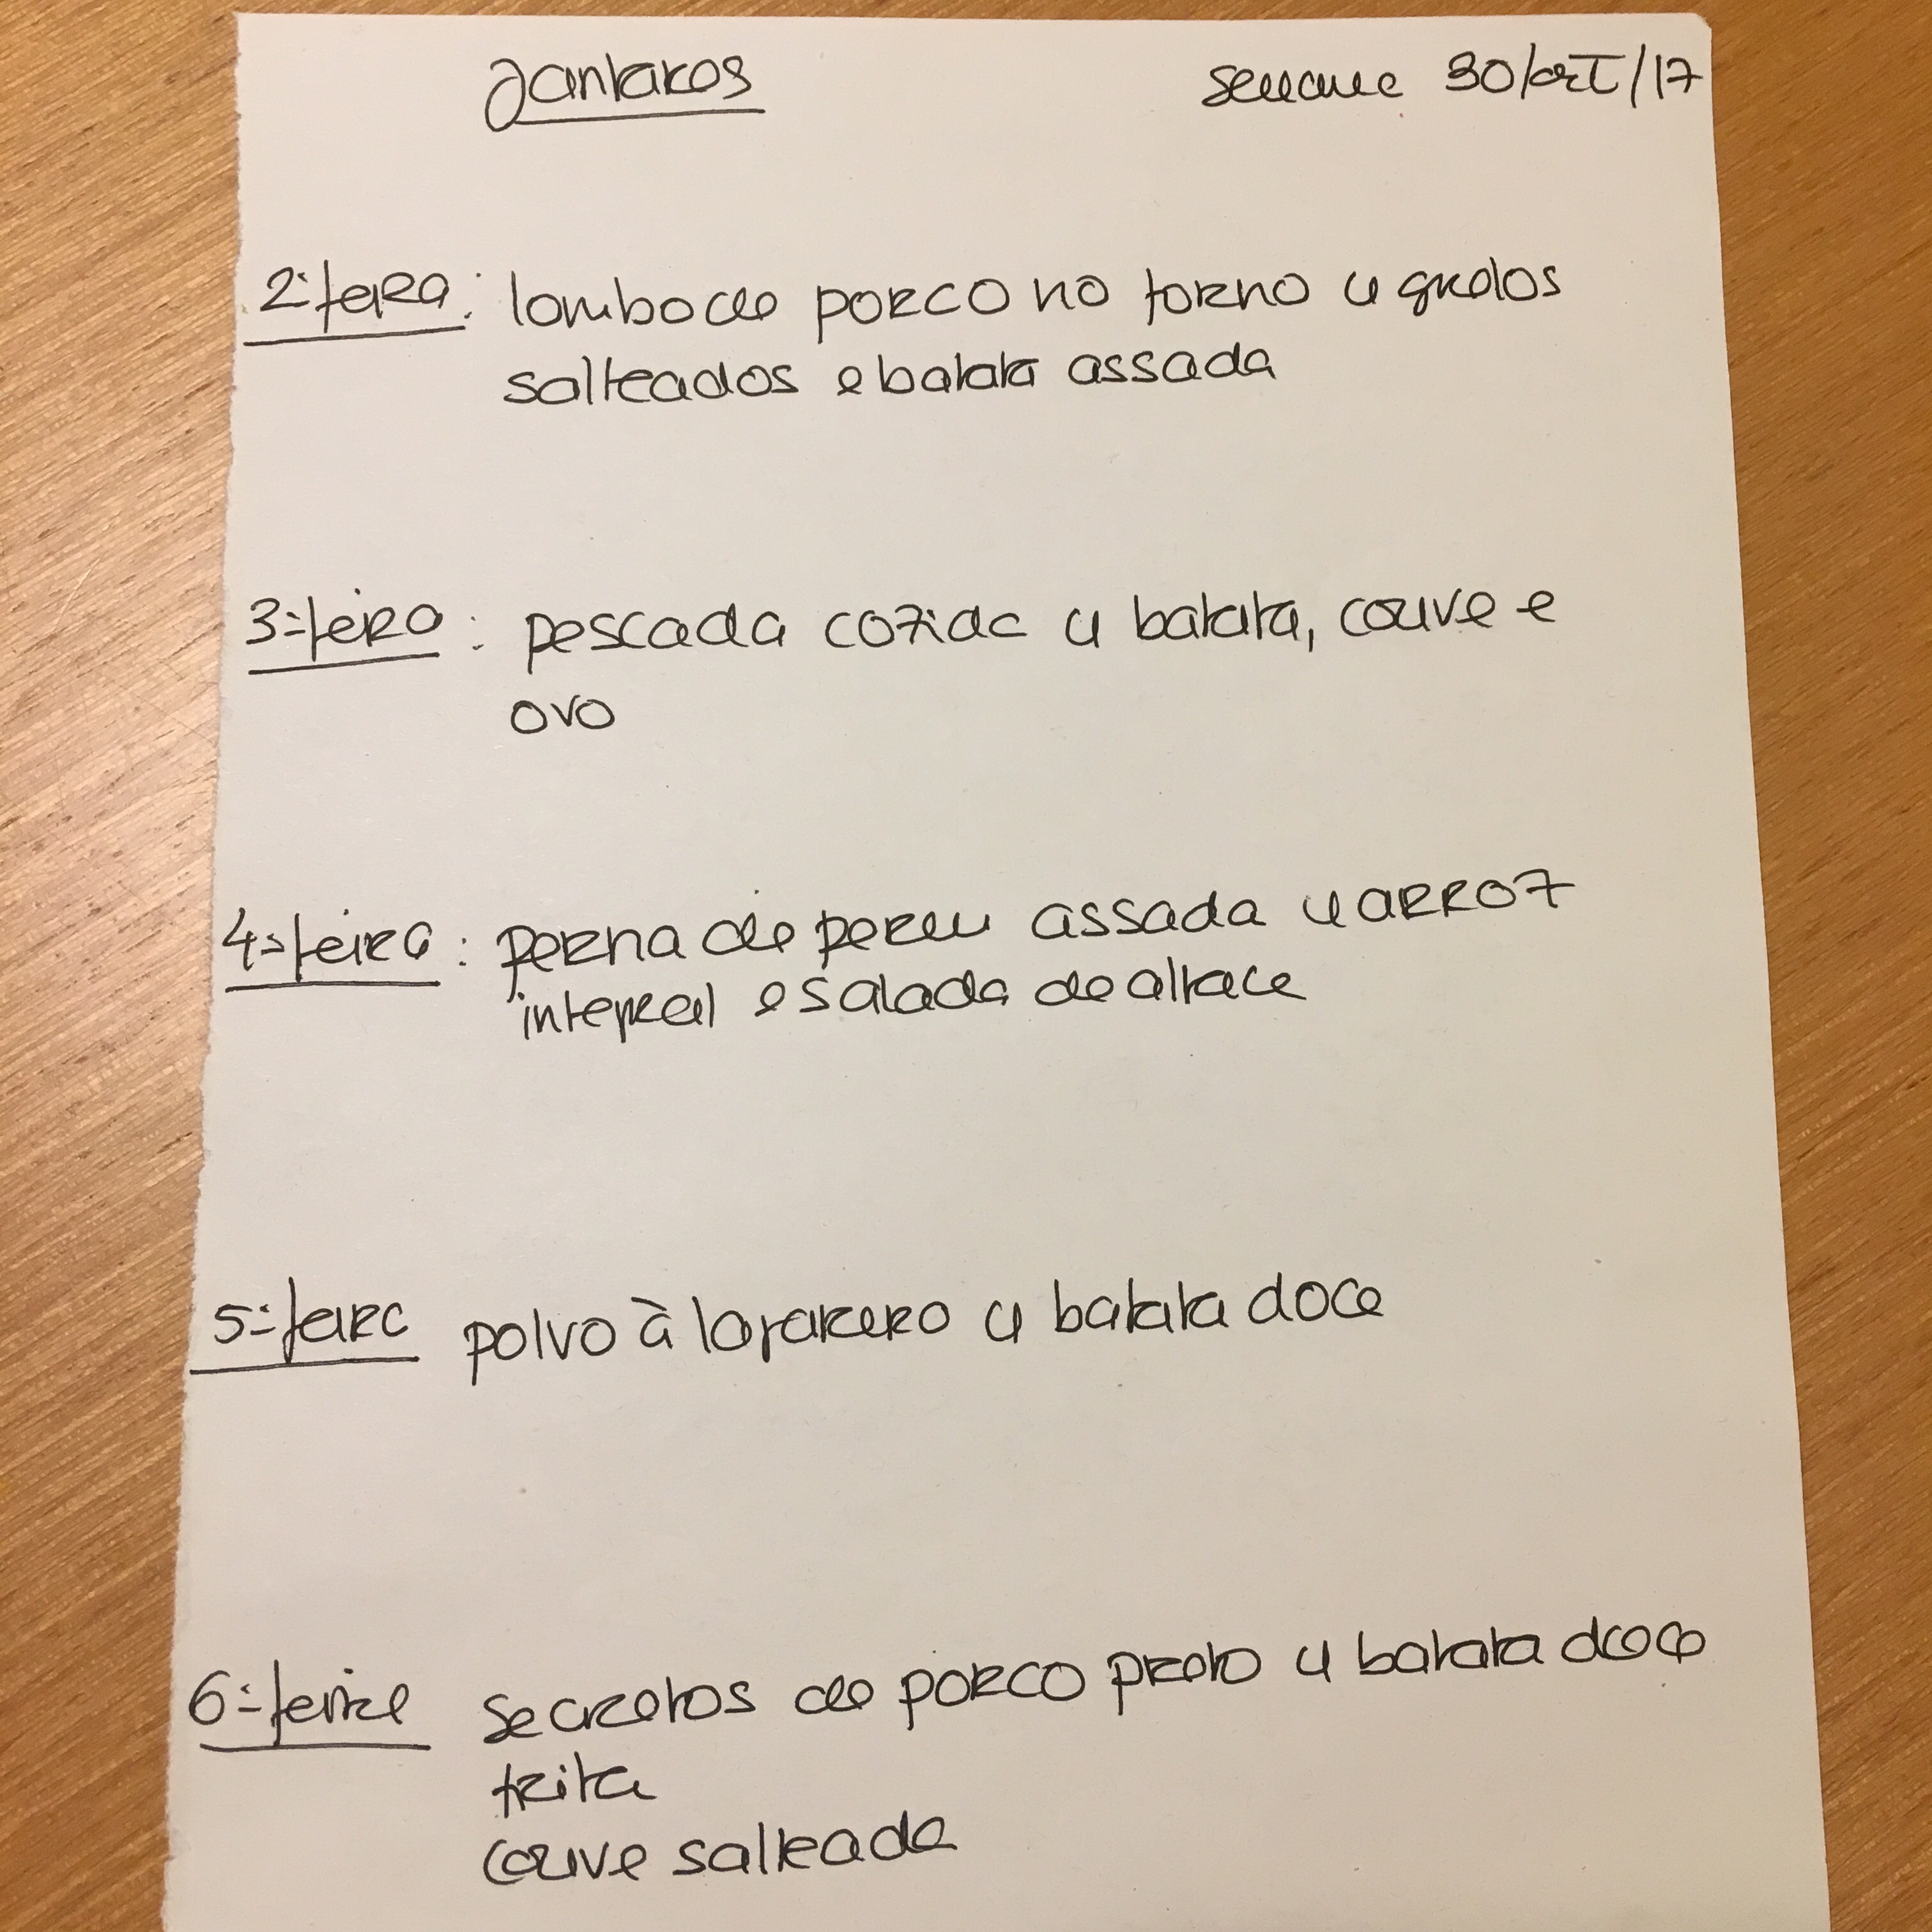 Jantares semana 30/out/17
2ª feira: lombo de porco no forno c/ grelos
salteados e batata assada
3ª feira: pescada cozida c/ batata, couve e
ovo
4ª feira: perna de peru assada c/ arroz
integral e salada de alface
5ª feira polvo à lagareiro c/ batata doce
6ª feira secretos de porco preto c/ batata doce
frita
couve salteada